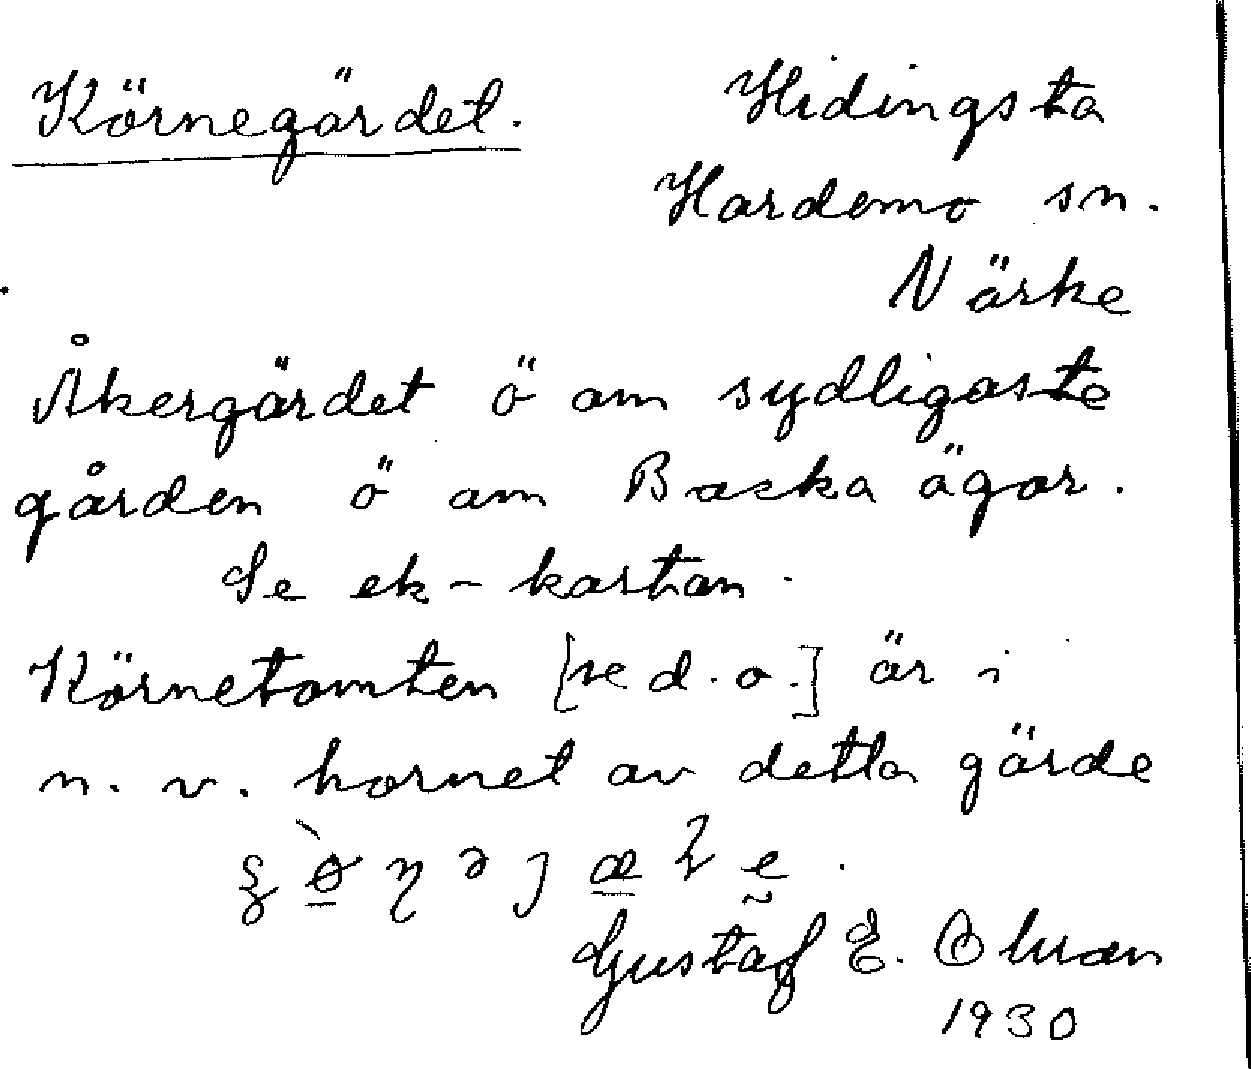 Körnegärdet. Hidingsta
Hardemo sn.
Närke
Åkergärdet ö om sydligaste
gården ö om Backa ägor.
Se ek-kartan.
Körnetomten [se d. o.] är i
n. v. hornet av detta gärde
Gustaf E. Ohman
1930